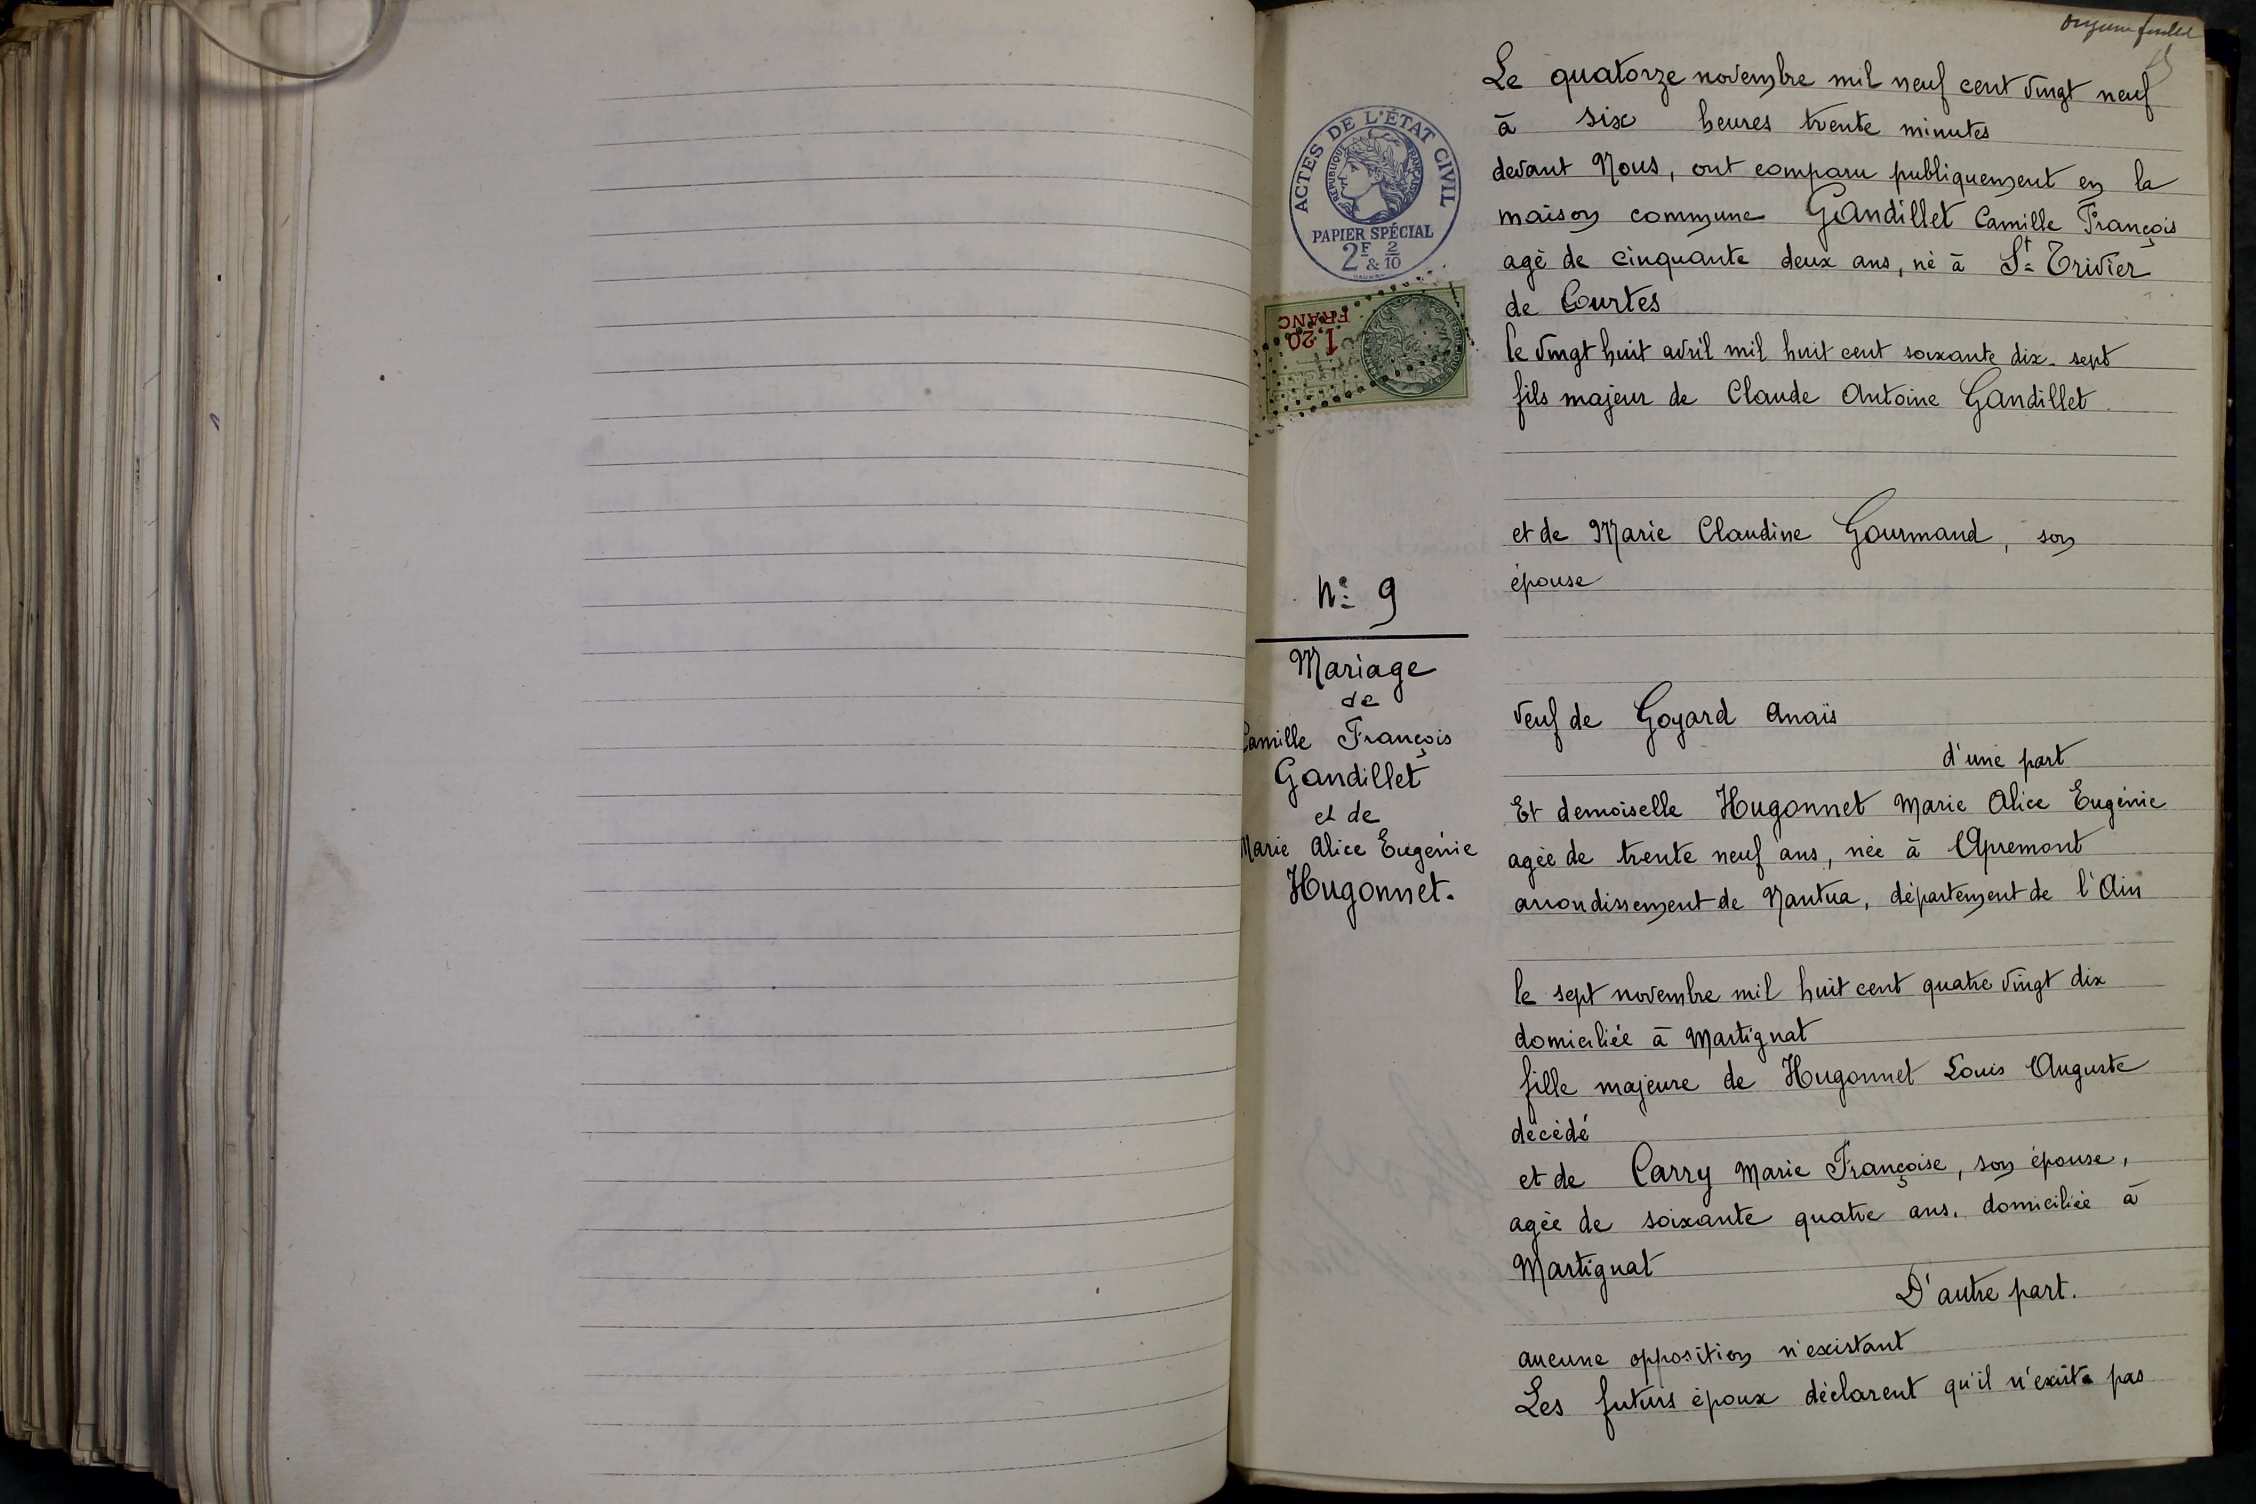 Le quatorze novembre mil neuf cent vingt neuf
à six heures trente minutes
devant Nous, ont comparu publiquement en la
maison commune Gandillet Camille François
agé de cinquante deux ans, né à St Trivier
de Courtes
le vingt huit avril mil huit cent soixante dix-sept
fils majeur de Claude Antoine Gandillet
et de Marie Claudine Gourmand, son
épouse
veuf de Goyard Anaïs
d'une part
Et demoiselle Hugonnet Marie Alice Eugénie
agée de trente neuf ans, née à Apremont
arrondissement de Nantua, département de l'Ain
le sept novembre mil huit cent quatre vingt dix
domiciliée à Martignat
fille majeure de Hugonnet Louis Auguste
décédé
et de Carry Marie Françoise, son épouse,
agée de soixante quatre ans. domiciliée à
Martignat
D'autre part.
aucune opposition n'existant
Les futurs époux déclarent qu'il n'existe pas
ACTES DE L'ÉTAT CIVIL
RÉPUBLIQUE FRANÇAISE
PAPIER SPÉCIAL
2F & 2/10
1,20
FRANC
No 9
Mariage
de
Camille François
Gandillet
et de
Marie Alice Eugénie
Hugonnet.